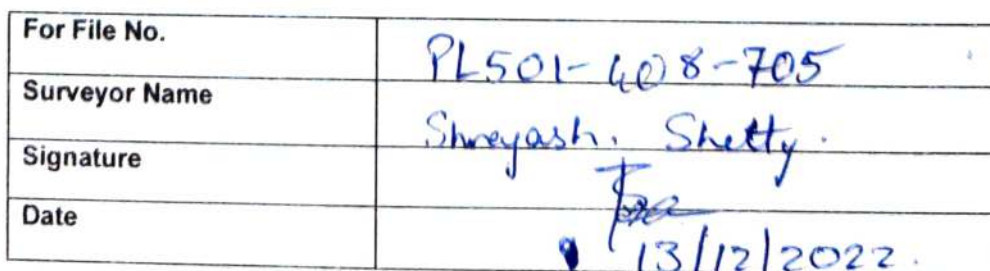 For File No. PL501-408-705
Surveyor Name Shreyash. Shetty.
Signature
Date 13/12/2022.